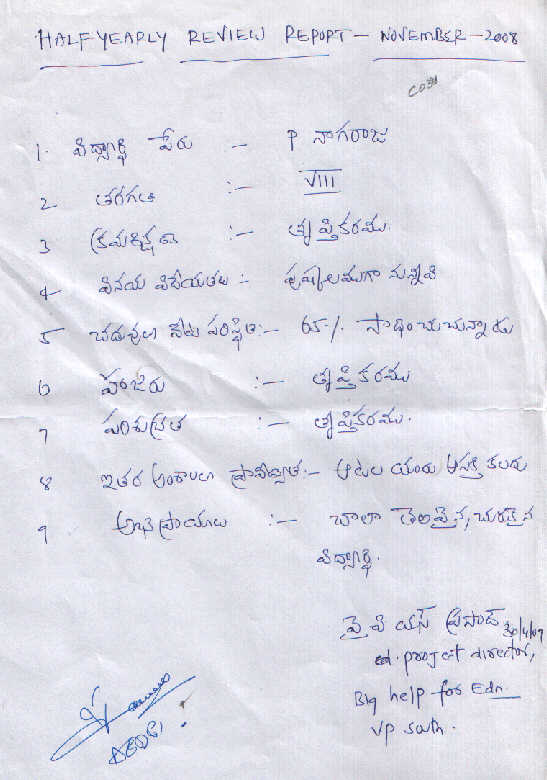 HALF YEARLY REVIEW REPORT - NOVEMBER - 2008
1. విద్యార్థి పేరు :- P నాగరాజు
2 తరగతి :- VIII
3 క్రమశిక్షణ :- తృప్తికరము.
4 వినయ విధేయతలు :- పుష్కలముగా నున్నవి
5 చదువులో ప్రస్తుత పరిస్థితి :- 65% సాధించుచున్నాడు
6 హాజరు :- తృప్తికరము
7 పరిశుభ్రత :- తృప్తికరము.
8 ఇతర అంశాలలో ప్రావీణ్యత :- ఆటల యందు ఆసక్తి కలదు
9 అభిప్రాయాలు :- చాలా తెలివైన, చురుకైన
విద్యార్థి.
వై వి యస్ ప్రసాద్ 30/4/09
project director,
Big help for Edn.
VP South.